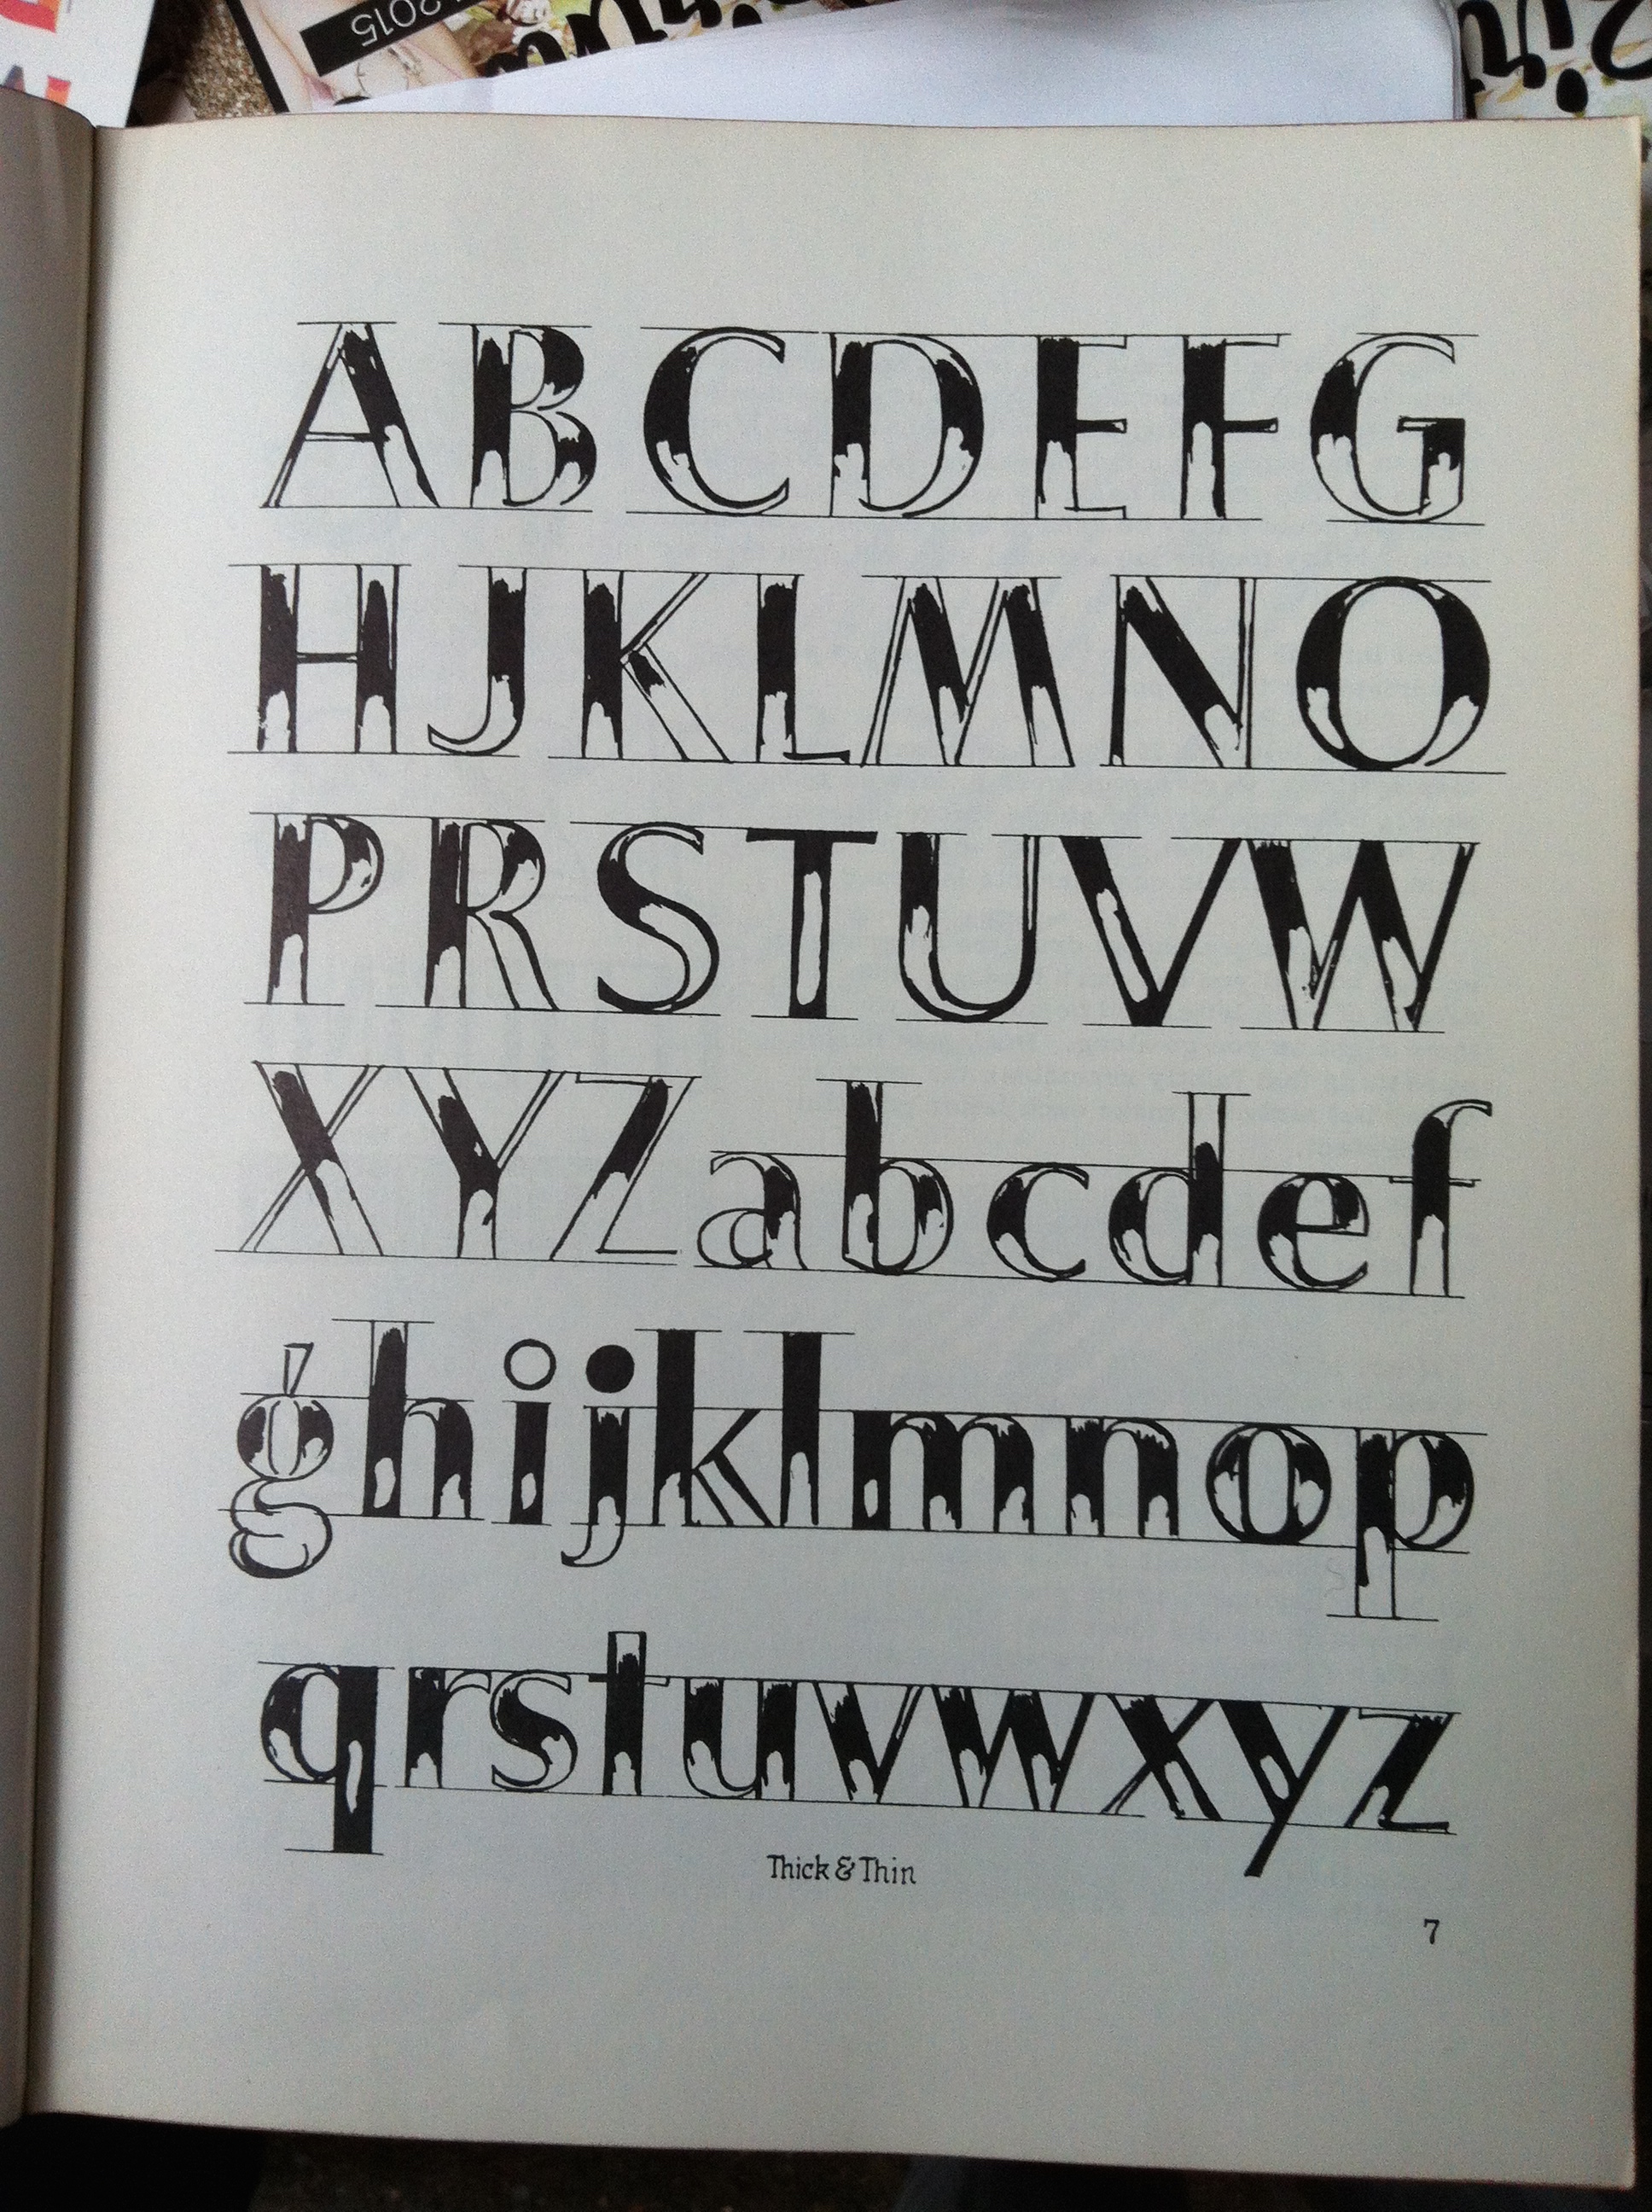 2015
ABCDEFG
HJKLMNO
PRSTUVW
XYZabcdef
ghijklmnop
qrstuvwxyz
Thick & Thin
7